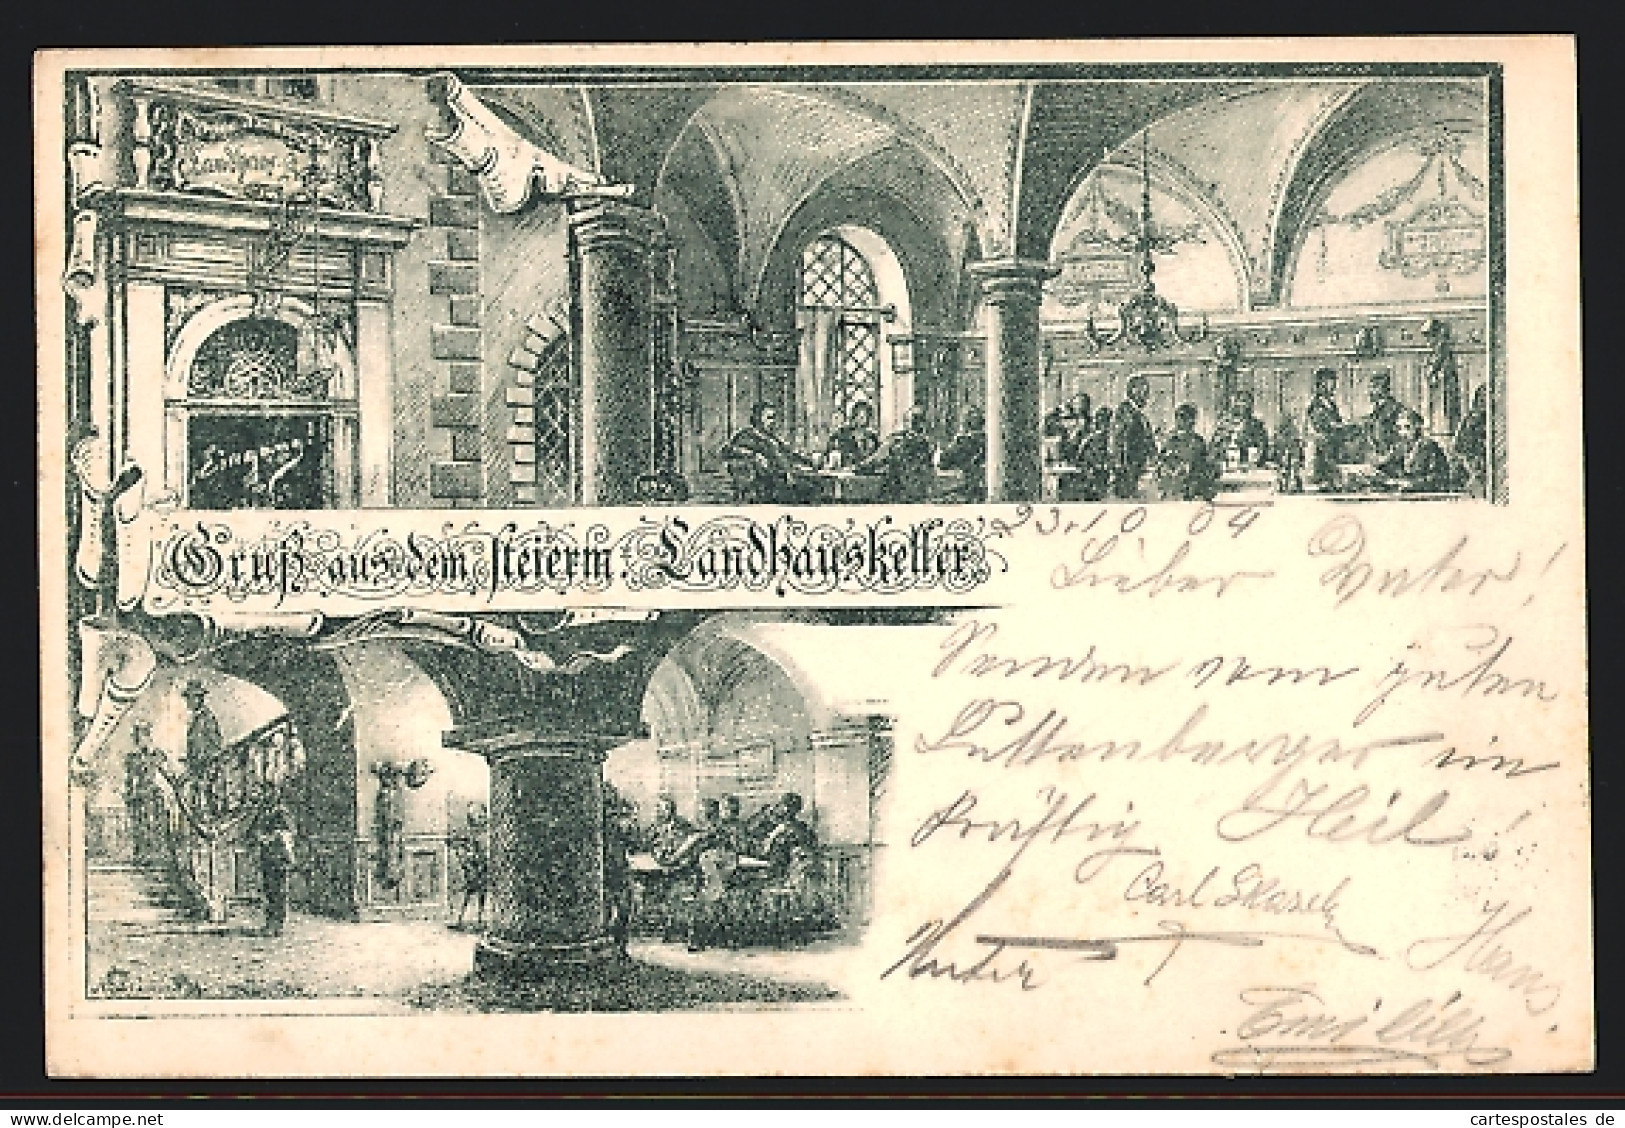 Landhaus
Eingang
Gruß aus dem steierm. Landhauskeller
23. 10 04
Lieber Vater!
Senden vom guten
Luttenberger ein
kräftig Heil!
Carl
Hans.
www.cartespostales.de
cartespostales de